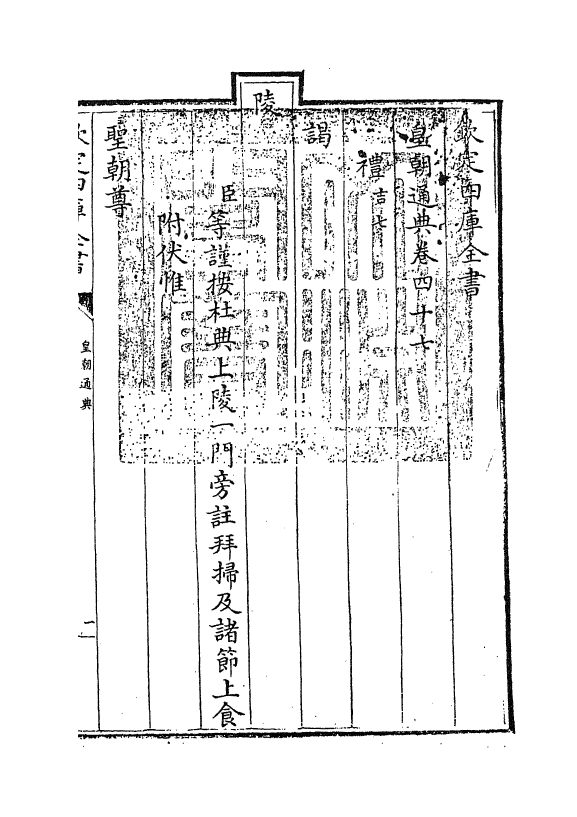 欽定四庫全書
皇朝通典卷四十七
禮吉七
謁
陵
臣等謹按杜典上陵一門旁註拜掃及諸節上食
附伏惟
聖朝尊
欽定四庫全書
皇朝通典
一